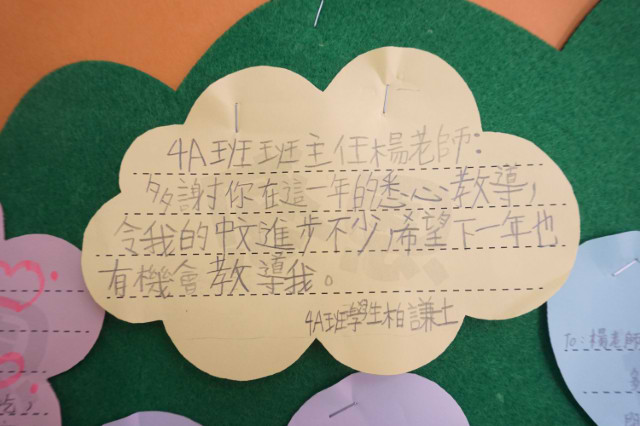 4A班班主任楊老師:
多謝你在這一年的悉心教導,
令我的中文進步不少,希望下一年也
有機會教導我。
4A班學生柏謙土
To: 楊老師